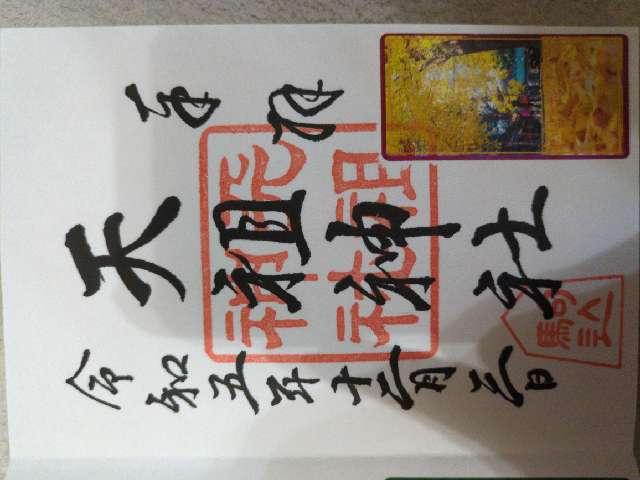 奉拝
天祖神社
令和五年十二月三日
天祖
神社
駒込